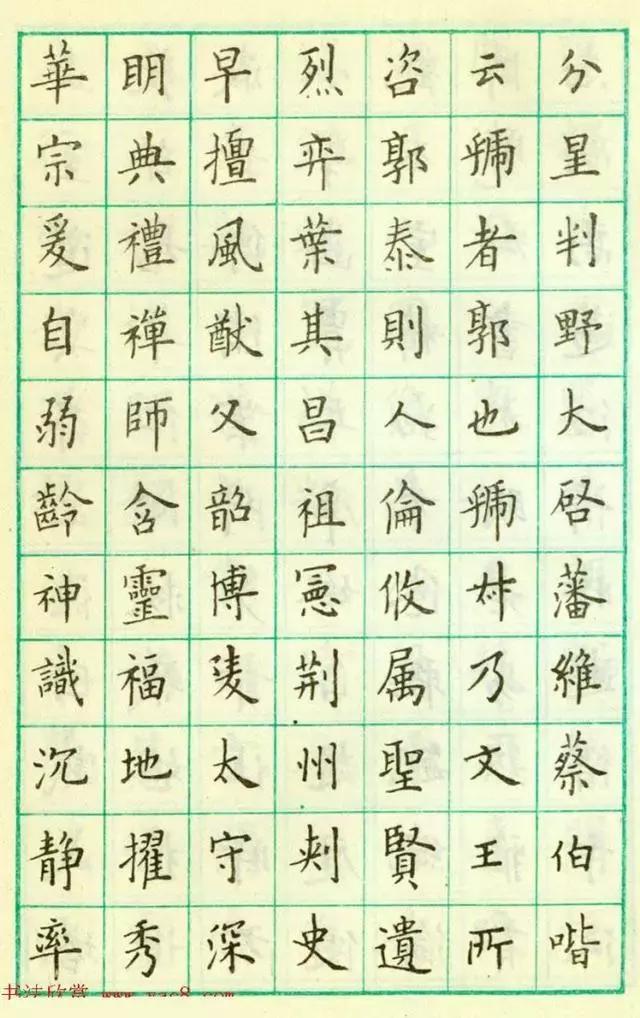 分星判野大啓藩維蔡伯喈
云虢者郭也虢叔乃文王所
咨郭泰則人倫攸属聖賢遺
烈弈葉其昌祖憲荆州刾史
早擅風猷父韶博陵太守深
明典禮禪師含靈福地擢秀
華宗爰自弱齡神識沉静率
书法欣赏 www.yac8.com